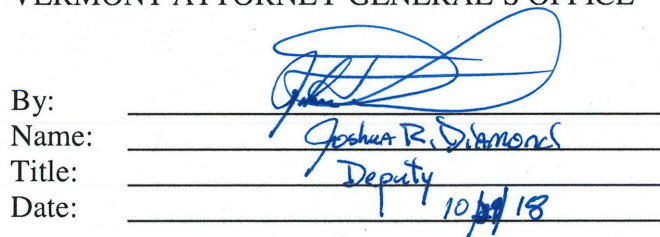 VERMONT ATTORNEY GENERAL'S OFFICE
By:
Name: Joshua R. Diamond
Title: Deputy
Date: 10 18